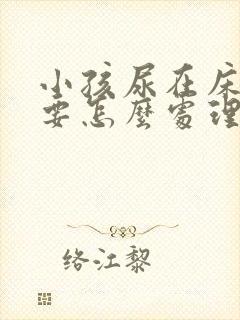 小孩尿在床
要怎麼處理
络江黎